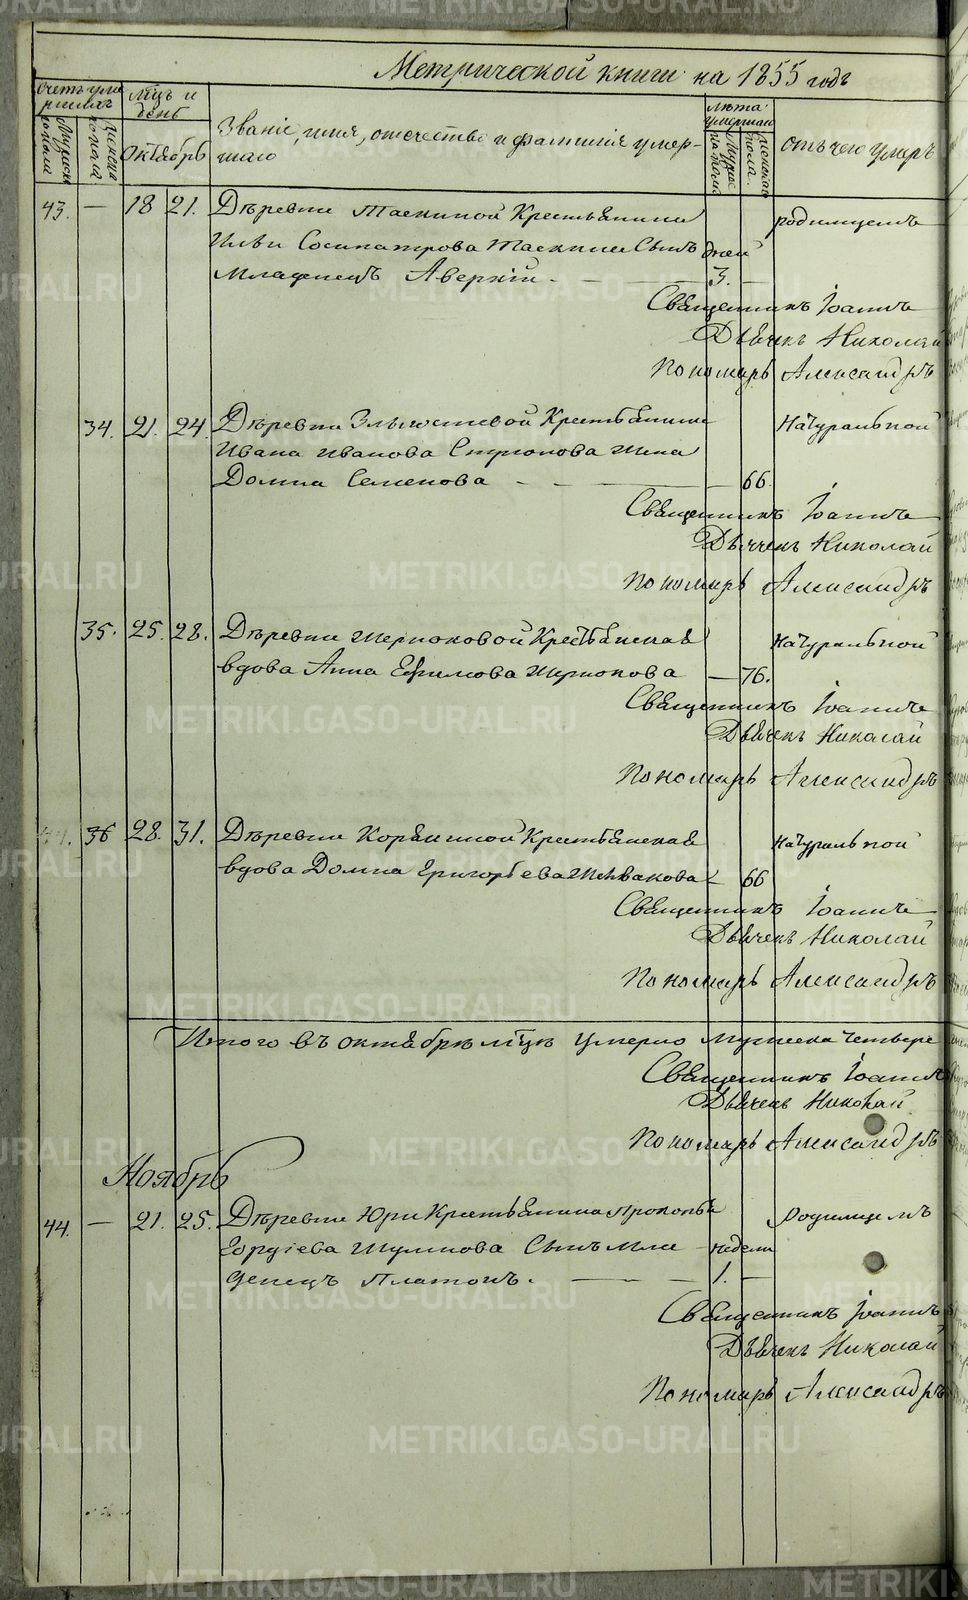 Метрической книги на 1855 годъ
Счетъ уме
ршихъ
Мѣцъ и
день
Октябрь
Званіе, имя, отчество и фамилія умер-
шаго
Лѣта
умершаго
отъ чего умеръ
43. — 18 21. Деревни Таскиной Крестьянина родимцемъ
Ильи Сосипатрова Таскина Сынъ дней
Младенецъ Аверкій. — 3. —
Священникъ Іоаннъ
Дьячекъ Николай
Пономарь Александръ
34. 21. 24. Деревни Крестьянина Натуральной
Ивана Иванова жена
Домна Семенова — — 66.
Священникъ Іоаннъ
Дьячекъ Николай
Пономарь Александръ
35. 25. 28. Деревни Крестьянская Натуральной
вдова Анна Ефимова — 76.
Священникъ Іоаннъ
Дьячекъ Николай
Пономарь Александръ
36 28. 31. Деревни Крестьянская Натуральной
вдова Домна Григорьева — 66
Священникъ Іоаннъ
Дьячекъ Николай
Пономарь Александръ
Итого въ октябрѣ мѣцѣ умерло Мужеска четвере
Священникъ Іоаннъ
Дьячекъ Николай
Пономарь Александръ
Ноябрь
44. — 21. 25. Деревни Юри Крестьянина Прокопья Родимцемъ
Гордіева Шумкова Сынъ Мла недели
денецъ Платонъ. — 1. —
Священникъ Іоаннъ
Дьячекъ Николай
Пономарь Александръ
METRIKI.GASO-URAL.RU